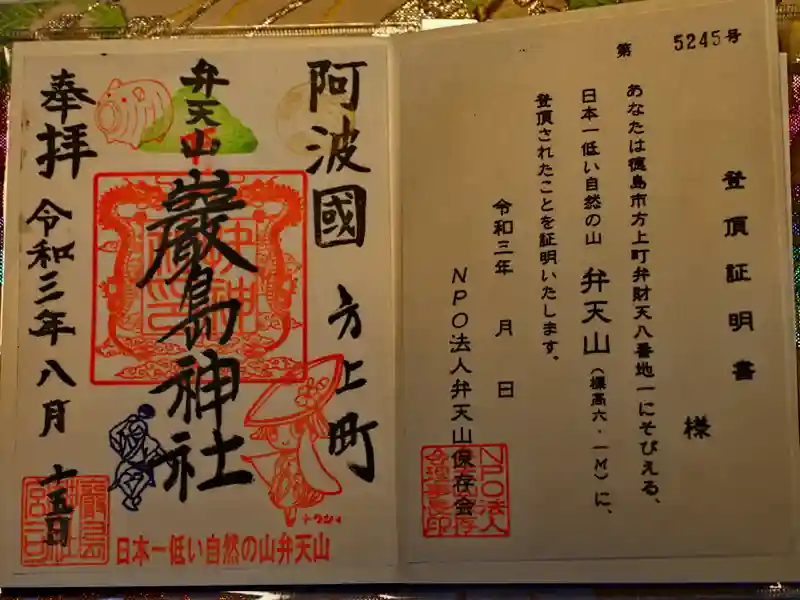 第 5245号
登頂証明書
様
あなたは徳島市方上町弁財天八番地一にそびえる、
日本一低い自然の山 弁天山(標高六・一M)に、
登頂されたことを証明いたします。
令和三年 月 日
NPO法人弁天山保存会
阿波國 方上町
弁天山
巌鳥神社
奉拝 令和三年八月 十五日
日本一低い自然の山弁天山
トクシィ
NPO法人